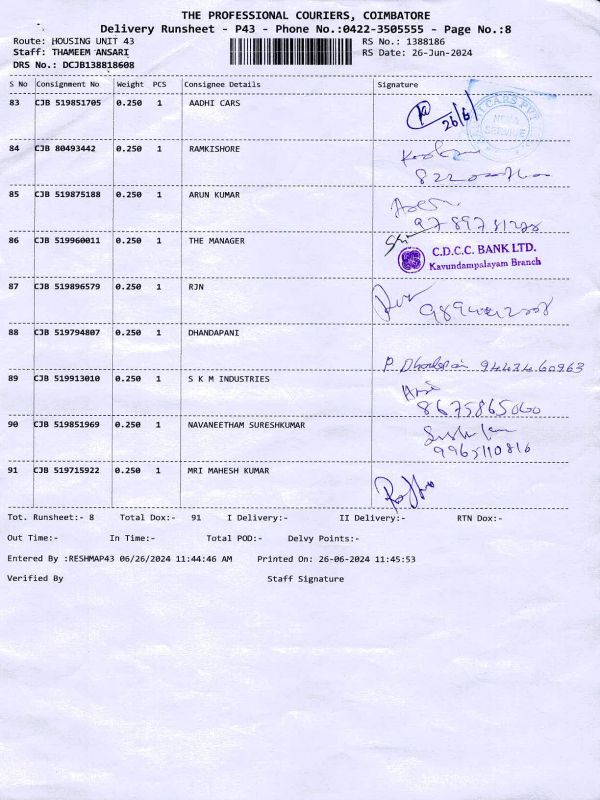 THE PROFESSIONAL COURIERS, COIMBATORE
Delivery Runsheet - P43 - Phone No.:0422-3505555 - Page No.:8
Route: HOUSING UNIT 43 RS No.: 1388186
Staff: THAMEEM ANSARI RS Date: 26-Jun-2024
DRS No.: DCJB138818608
S No Consignment No Weight PCS Consignee Details Signature
83 CJB 519851705 0.250 1 AADHI CARS
26/6
CARS PVT
SERVICE
84 CJB 80493442 0.250 1 RAMKISHORE
85 CJB 519875188 0.250 1 ARUN KUMAR
86 CJB 519960011 0.250 1 THE MANAGER
C.D.C.C. BANK LTD.
Kavundampalayam Branch
87 CJB 519896579 0.250 1 RJN
88 CJB 519794807 0.250 1 DHANDAPANI
P. 9443460963
89 CJB 519913010 0.250 1 S K M INDUSTRIES
8675865060
90 CJB 519851969 0.250 1 NAVANEETHAM SURESHKUMAR
9965110816
91 CJB 519715922 0.250 1 MRI MAHESH KUMAR
Tot. Runsheet:- 8 Total Dox:- 91 I Delivery:- II Delivery:- RTN Dox:-
Out Time:- In Time:- Total POD:- Delvy Points:-
Entered By :RESHMAP43 06/26/2024 11:44:46 AM Printed On: 26-06-2024 11:45:53
Verified By Staff Signature